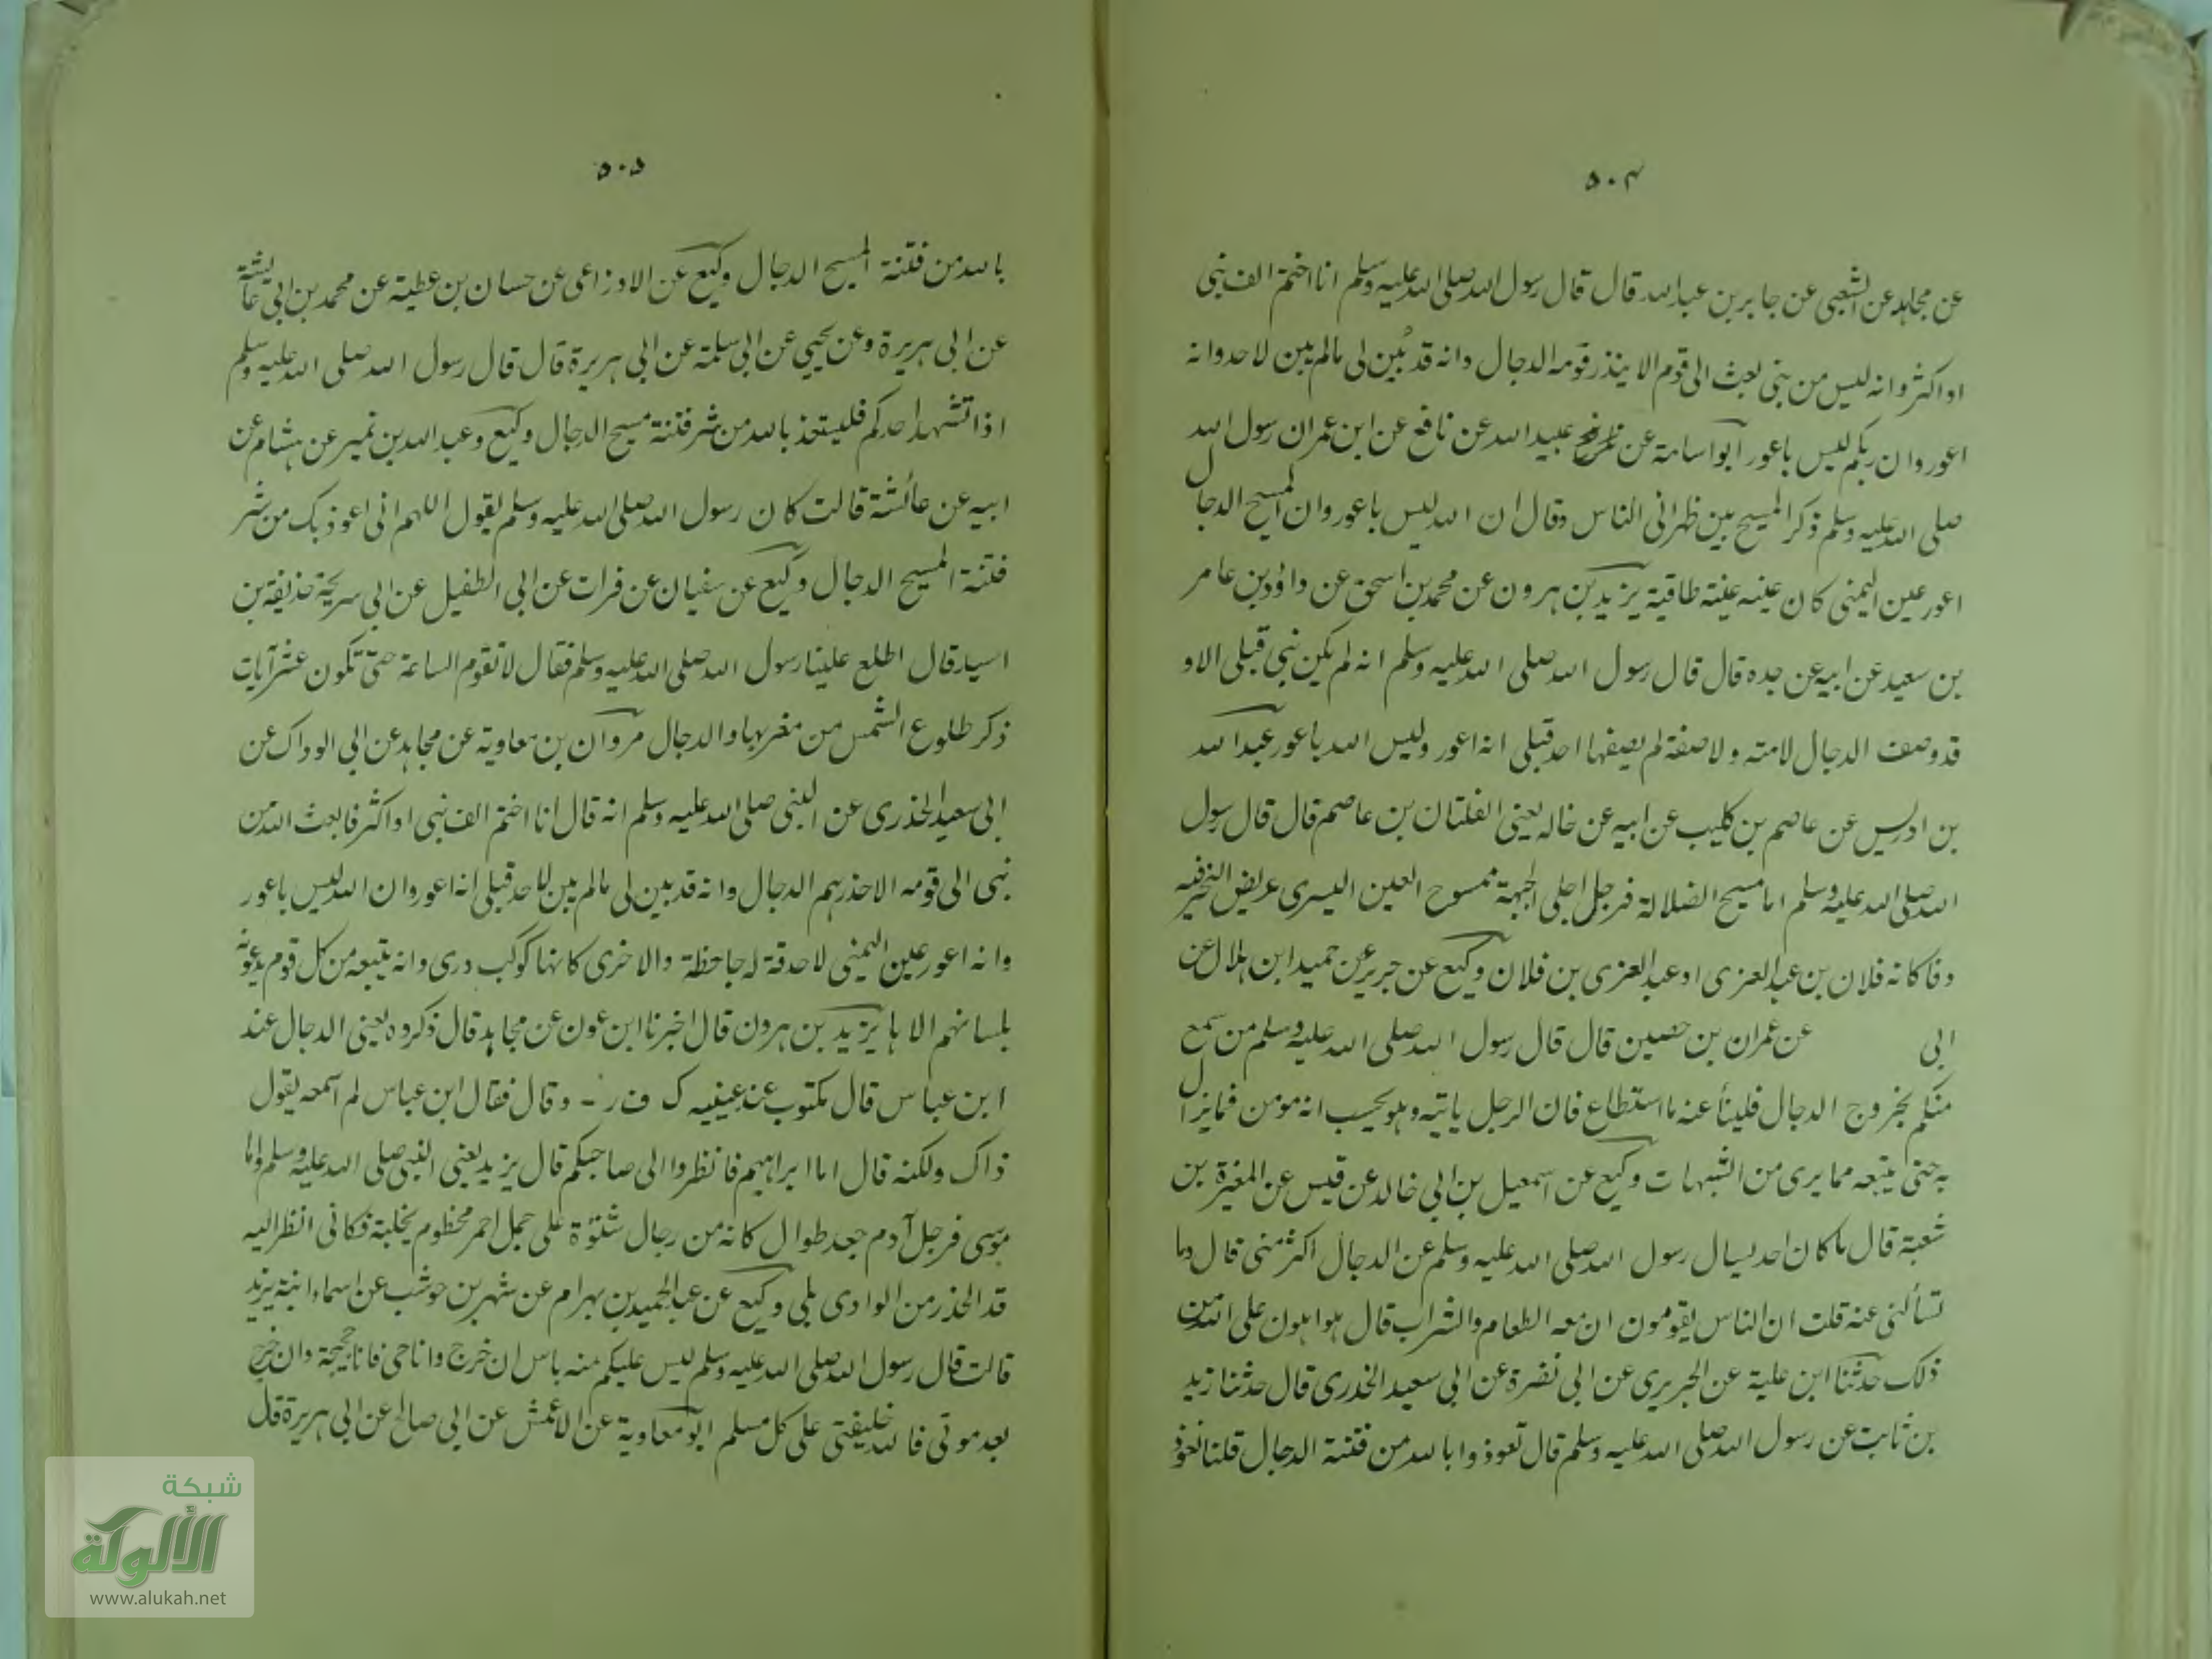 ٥٠٤
عن مجاهد عن الشعبى عن جابر بن عبد الله قال قال رسول الله صلى الله عليه وسلم انا اختم الف نبى
او اكثر وانه ليس من بنى بعث الى قوم الا ينذر قومه الدجال وانه قد بُين لى مالم يبن لاحد وانه
اعور وان ربكم ليس باعور ابو اسامة عن عبيد الله عن نافع عن ابن عمر ان رسول الله
صلى الله عليه وسلم ذكر المسيح بين ظهرانى الناس وقال ان الله ليس باعور وان المسيح الدجال
اعور عين اليمنى كان عينه عنبة طافية يزيد بن هرون عن محمد بن اسحق عن داؤد بن عامر
بن سعيد عن ابيه عن جده قال قال رسول الله صلى الله عليه وسلم انه لم يكن نبى قبلى الا و
قد وصف الدجال لامته ولا صفنه لم يصفها احد قبلى انه اعور وليس الله باعور عبد الله
بن ادريس عن عاصم بن كليب عن ابيه عن خاله يعنى الفلتان بن عاصم قال قال رسول
الله صلى الله عليه وسلم اما مسيح الضلالة فرجل اجلى الجبهة ممسوح العين اليسرى عريض النحر فيه
دفا كانه فلان بن عبد العزى او عبد العزى بن فلان وكيع عن جرير عن حميد ابن هلال عن
ابى عن عمران بن حصين قال قال رسول الله صلى الله عليه وسلم من سمع
منكم بخروج الدجال فلينأ عنه ما استطاع فان الرجل ياتيه وهو يحسب انه مومن فمايزال
به حتى يتبعه مما يرى من الشبهات وكيع عن اسمعيل بن ابى خالد عن قيس عن المغيرة بن
شعبة قال ما كان احد يسال رسول الله صلى الله عليه وسلم عن الدجال اكثر منى قال وما
تسألنى عنه قلت ان الناس يقومون ان معه الطعام والشراب قال هو اهون على الله من
ذلك حدثنا ابن علية عن الجريرى عن ابى نضرة عن ابى سعيد الخدرى قال حدثنا زيد
بن ثابت عن رسول الله صلى الله عليه وسلم قال تعوذوا بالله من فتنة الدجال قلنا نعوذ
٥٠٥
بالله من فتنة المسيح الدجال وكيع عن الاوزاعى عن حسان بن عطية عن محمد بن ابى عائشة
عن ابى هريرة وعن يحيى عن ابى سلمة عن ابى هريرة قال قال رسول الله صلى الله عليه وسلم
اذا تشهد احدكم فليستعذ بالله من شر فتنة مسيح الدجال وكيع وعبد الله بن نمير عن هشام عن
ابيه عن عائشة قالت كان رسول الله صلى الله عليه وسلم يقول اللهم انى اعوذ بك من شر
فتنة المسيح الدجال وكيع عن سفيان عن فرات عن ابى الطفيل عن ابى سريحة حذيفة بن
اسيد قال اطلع علينا رسول الله صلى الله عليه وسلم فقال لا تقوم الساعة حتى تكون عشر آيات
ذكر طلوع الشمس من مغربها والدجال مروان بن معاوية عن مجاهد عن ابى الوداك عن
ابى سعيد الخدرى عن النبى صلى الله عليه وسلم انه قال انا اختم الف نبى او اكثر فا بعث الله من
نبى الى قومه الا حذرهم الدجال وانه قد بين لى مالم يبن لاحد قبلى انه اعور وان الله ليس باعور
وانه اعور عين اليمنى لا حدقة له جاحظة والاخرى كانها كوكب درى وانه يتبعه من كل قوم يدعونه
بلسانهم الاها يزيد بن هرون قال اخبرنا ابن عون عن مجاهد قال ذكروه يعنى الدجال عند
ابن عباس قال مكتوب عند عينيه ك ف ر - وقال فقال ابن عباس لم اسمعه يقول
ذاك ولكنه قال اما ابراهيم فانظروا الى صاحبكم قال يزيد يعنى النبى صلى الله عليه وسلم واما
موسى فرجل آدم جعد طوال كانه من رجال شنؤة على جمل احمر مخطوم بخلبة فكانى انظر اليه
قد الحذر من الوادى يلبى وكيع عن عبد الحميد بن بهرام عن شهر بن حوشب عن اسماء ابنة يزيد
قالت قال رسول الله صلى الله عليه وسلم ليس عليكم منه باس ان خرج وانا حى فانا حجيجه وان خرج
بعد موتى فالله خليفتى على كل مسلم ابو معاوية عن الاعمش عن ابى صالح عن ابى هريرة قال
شبكة
الألوكة
www.alukah.net